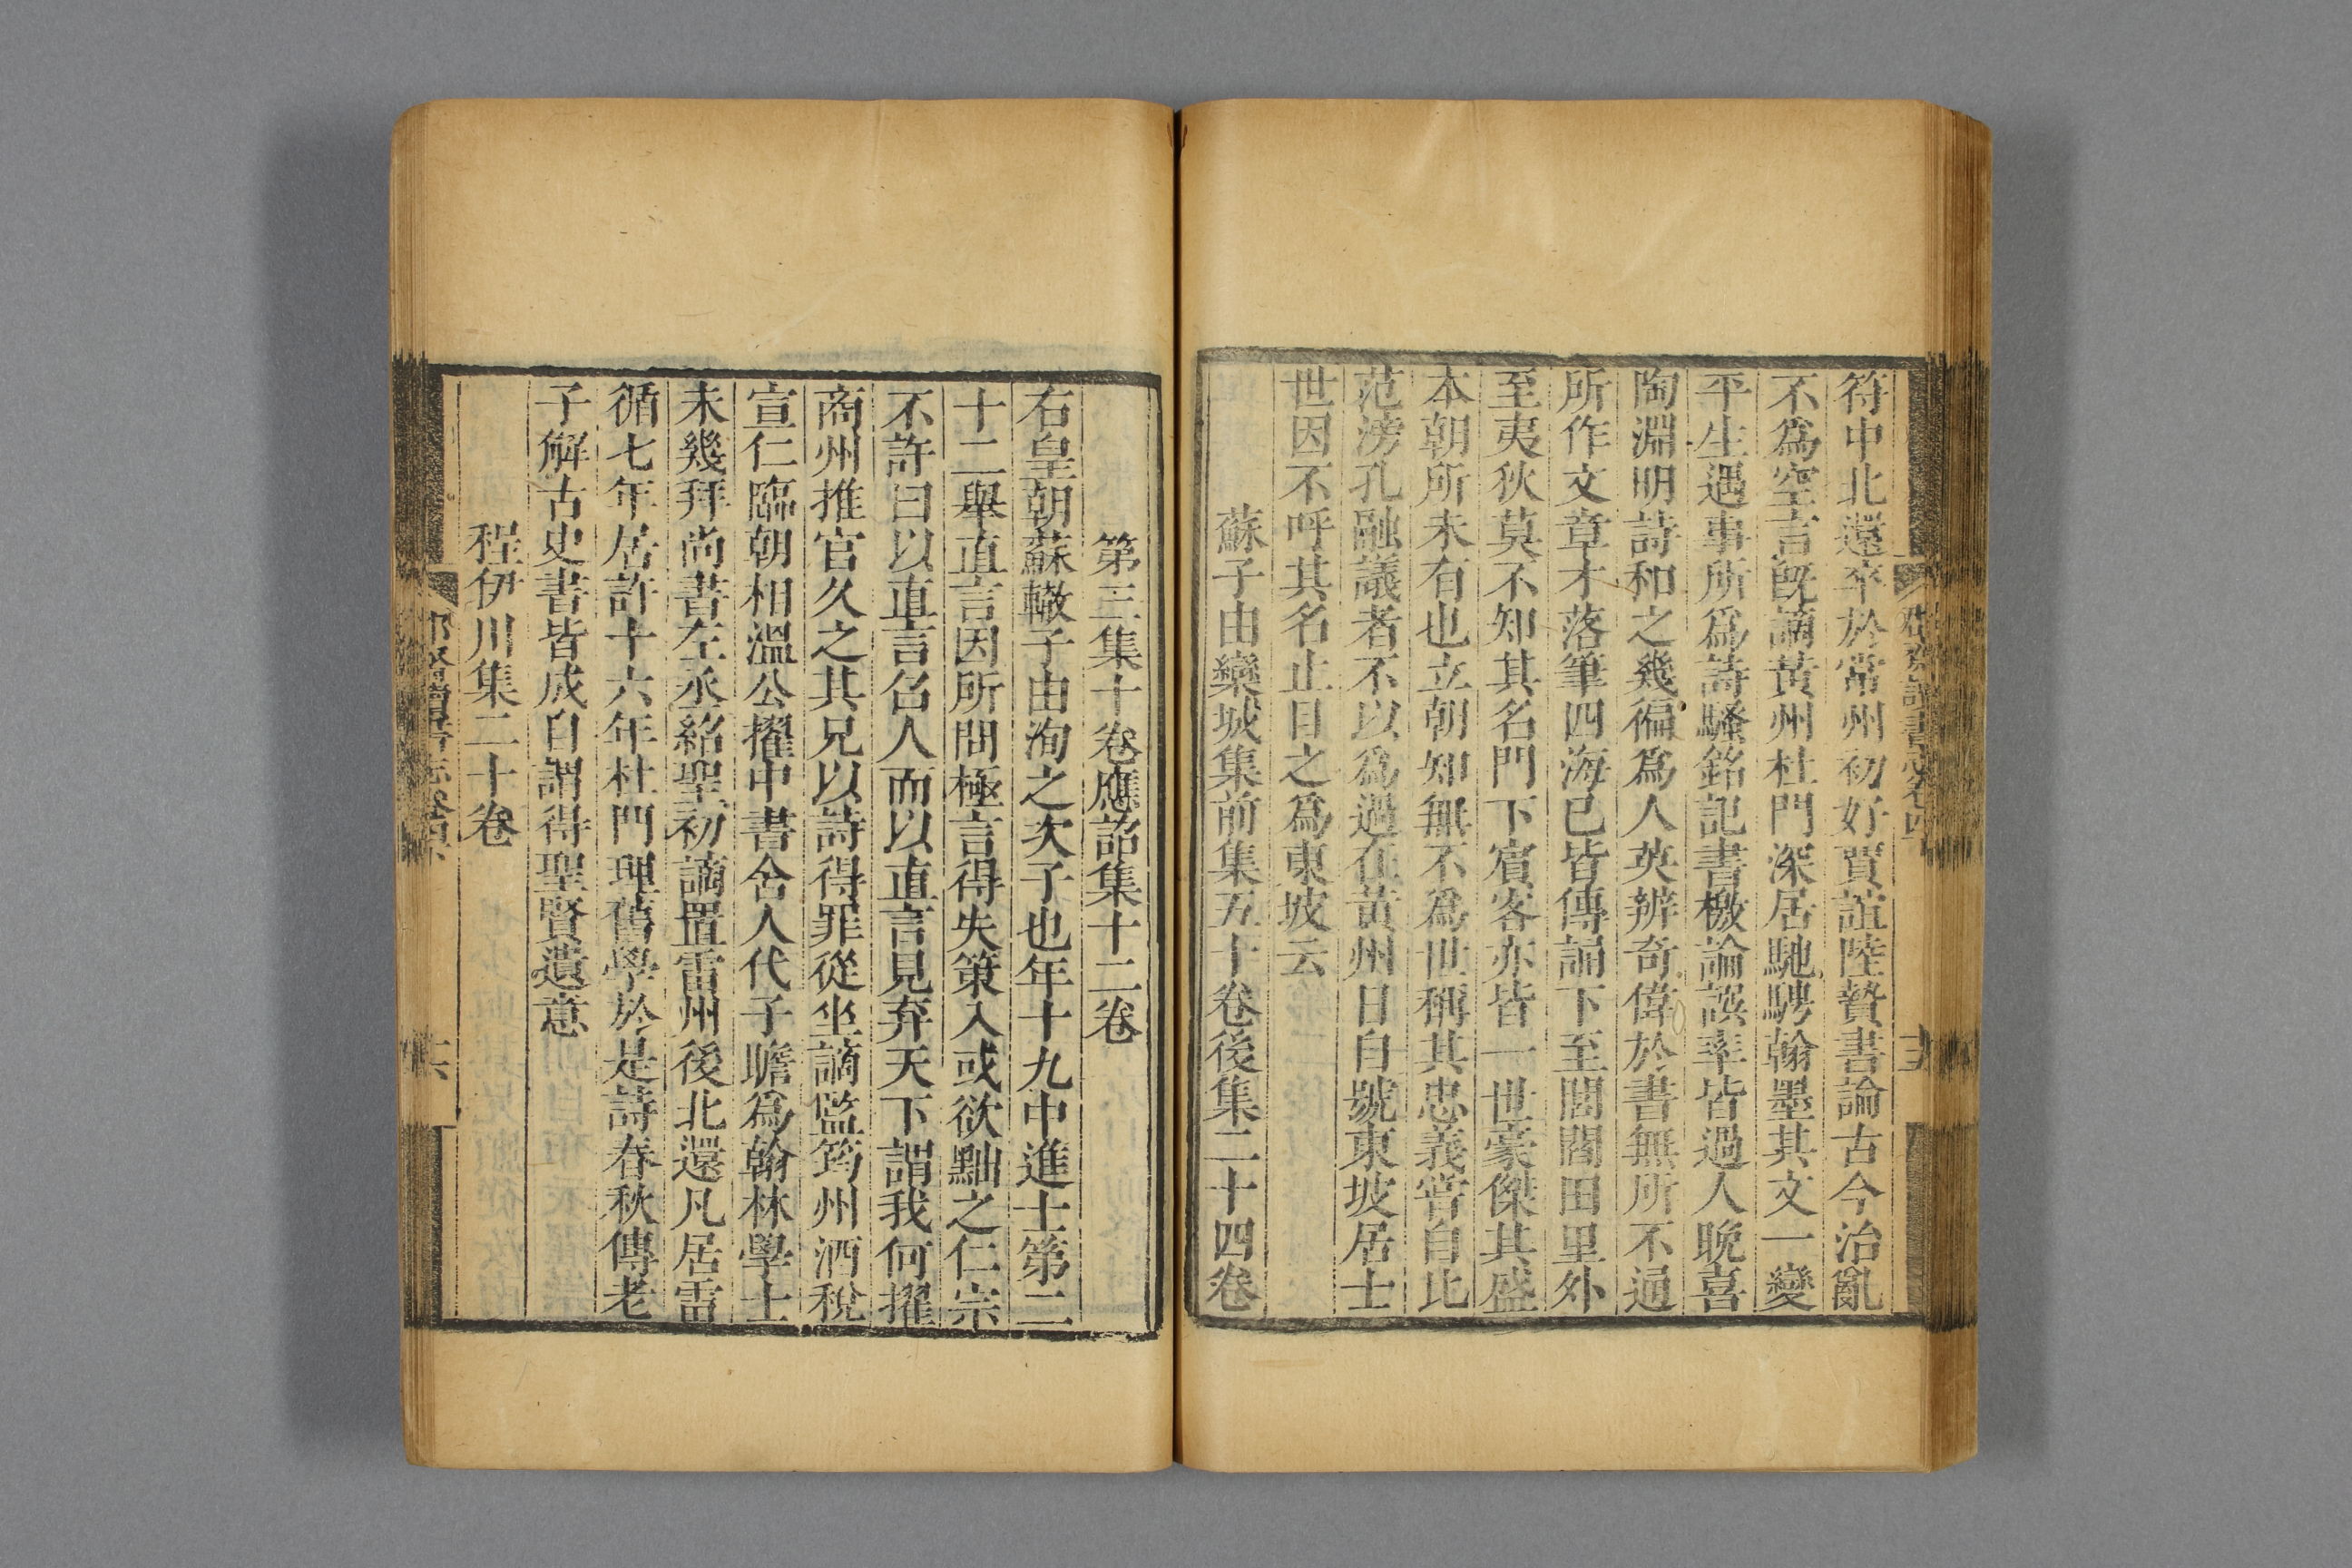 符中北還卒於常州初好賈誼陸贄書論古今治亂
不爲空言旣謫黃州杜門深居馳騁翰墨其文一變
平生遇事所爲詩騷銘記書檄論譔率皆過人晩喜
陶淵明詩和之幾徧爲人英辨奇偉於書無所不通
所作文章才落筆四海已皆傳誦下至閭閻田里外
至夷狄莫不知其名門下賓客亦皆一世豪傑其盛
本朝所未有也立朝知無不爲世稱其忠義嘗自比
范滂孔融議者不以爲過在黃州日自號東坡居士
世因不呼其名止目之爲東坡云
蘇子由欒城集前集五十卷後集二十四卷
第三集十卷應詔集十二卷
右皇朝蘇轍子由洵之次子也年十九中進士第二
十二舉直言因所問極言得失策入或欲黜之仁宗
不許曰以直言召人而以直言見弃天下謂我何擢
商州推官久之其兄以詩得罪從坐謫監筠州酒稅
宣仁臨朝相溫公擢中書舍人代子瞻爲翰林學士
未幾拜尚書左丞紹聖初謫置雷州後北還凡居雷
循七年居許十六年杜門理舊學於是詩春秋傳老
子解古史書皆成自謂得聖賢遺意
程伊川集二十卷